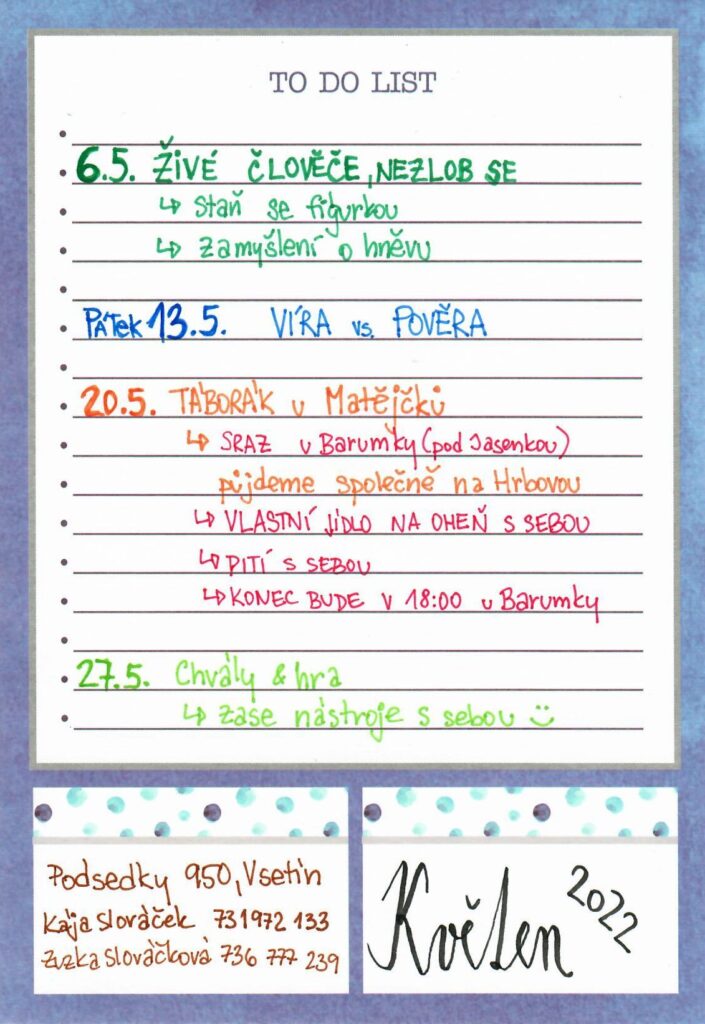 TO DO LIST
6.5. ŽIVÉ ČLOVĚČE, NEZLOB SE
↳ staň se figurkou
↳ zamyšlení o hněvu
PÁTEK 13.5. VÍRA vs. POVĚRA
20.5. TÁBORÁK u Matějčků
↳ SRAZ u Barumky (pod Jasenkou)
půjdeme společně na Hrbovou
↳ VLASTNÍ JÍDLO NA OHEŇ S SEBOU
↳ PITÍ S SEBOU
↳ KONEC BUDE V 18:00 u Barumky
27.5. Chvály & hra
↳ zase nástroje s sebou :)
Podsedky 950, Vsetín
Kája Slováček 731 972 133
Zuzka Slováčková 736 777 239
Květen 2022